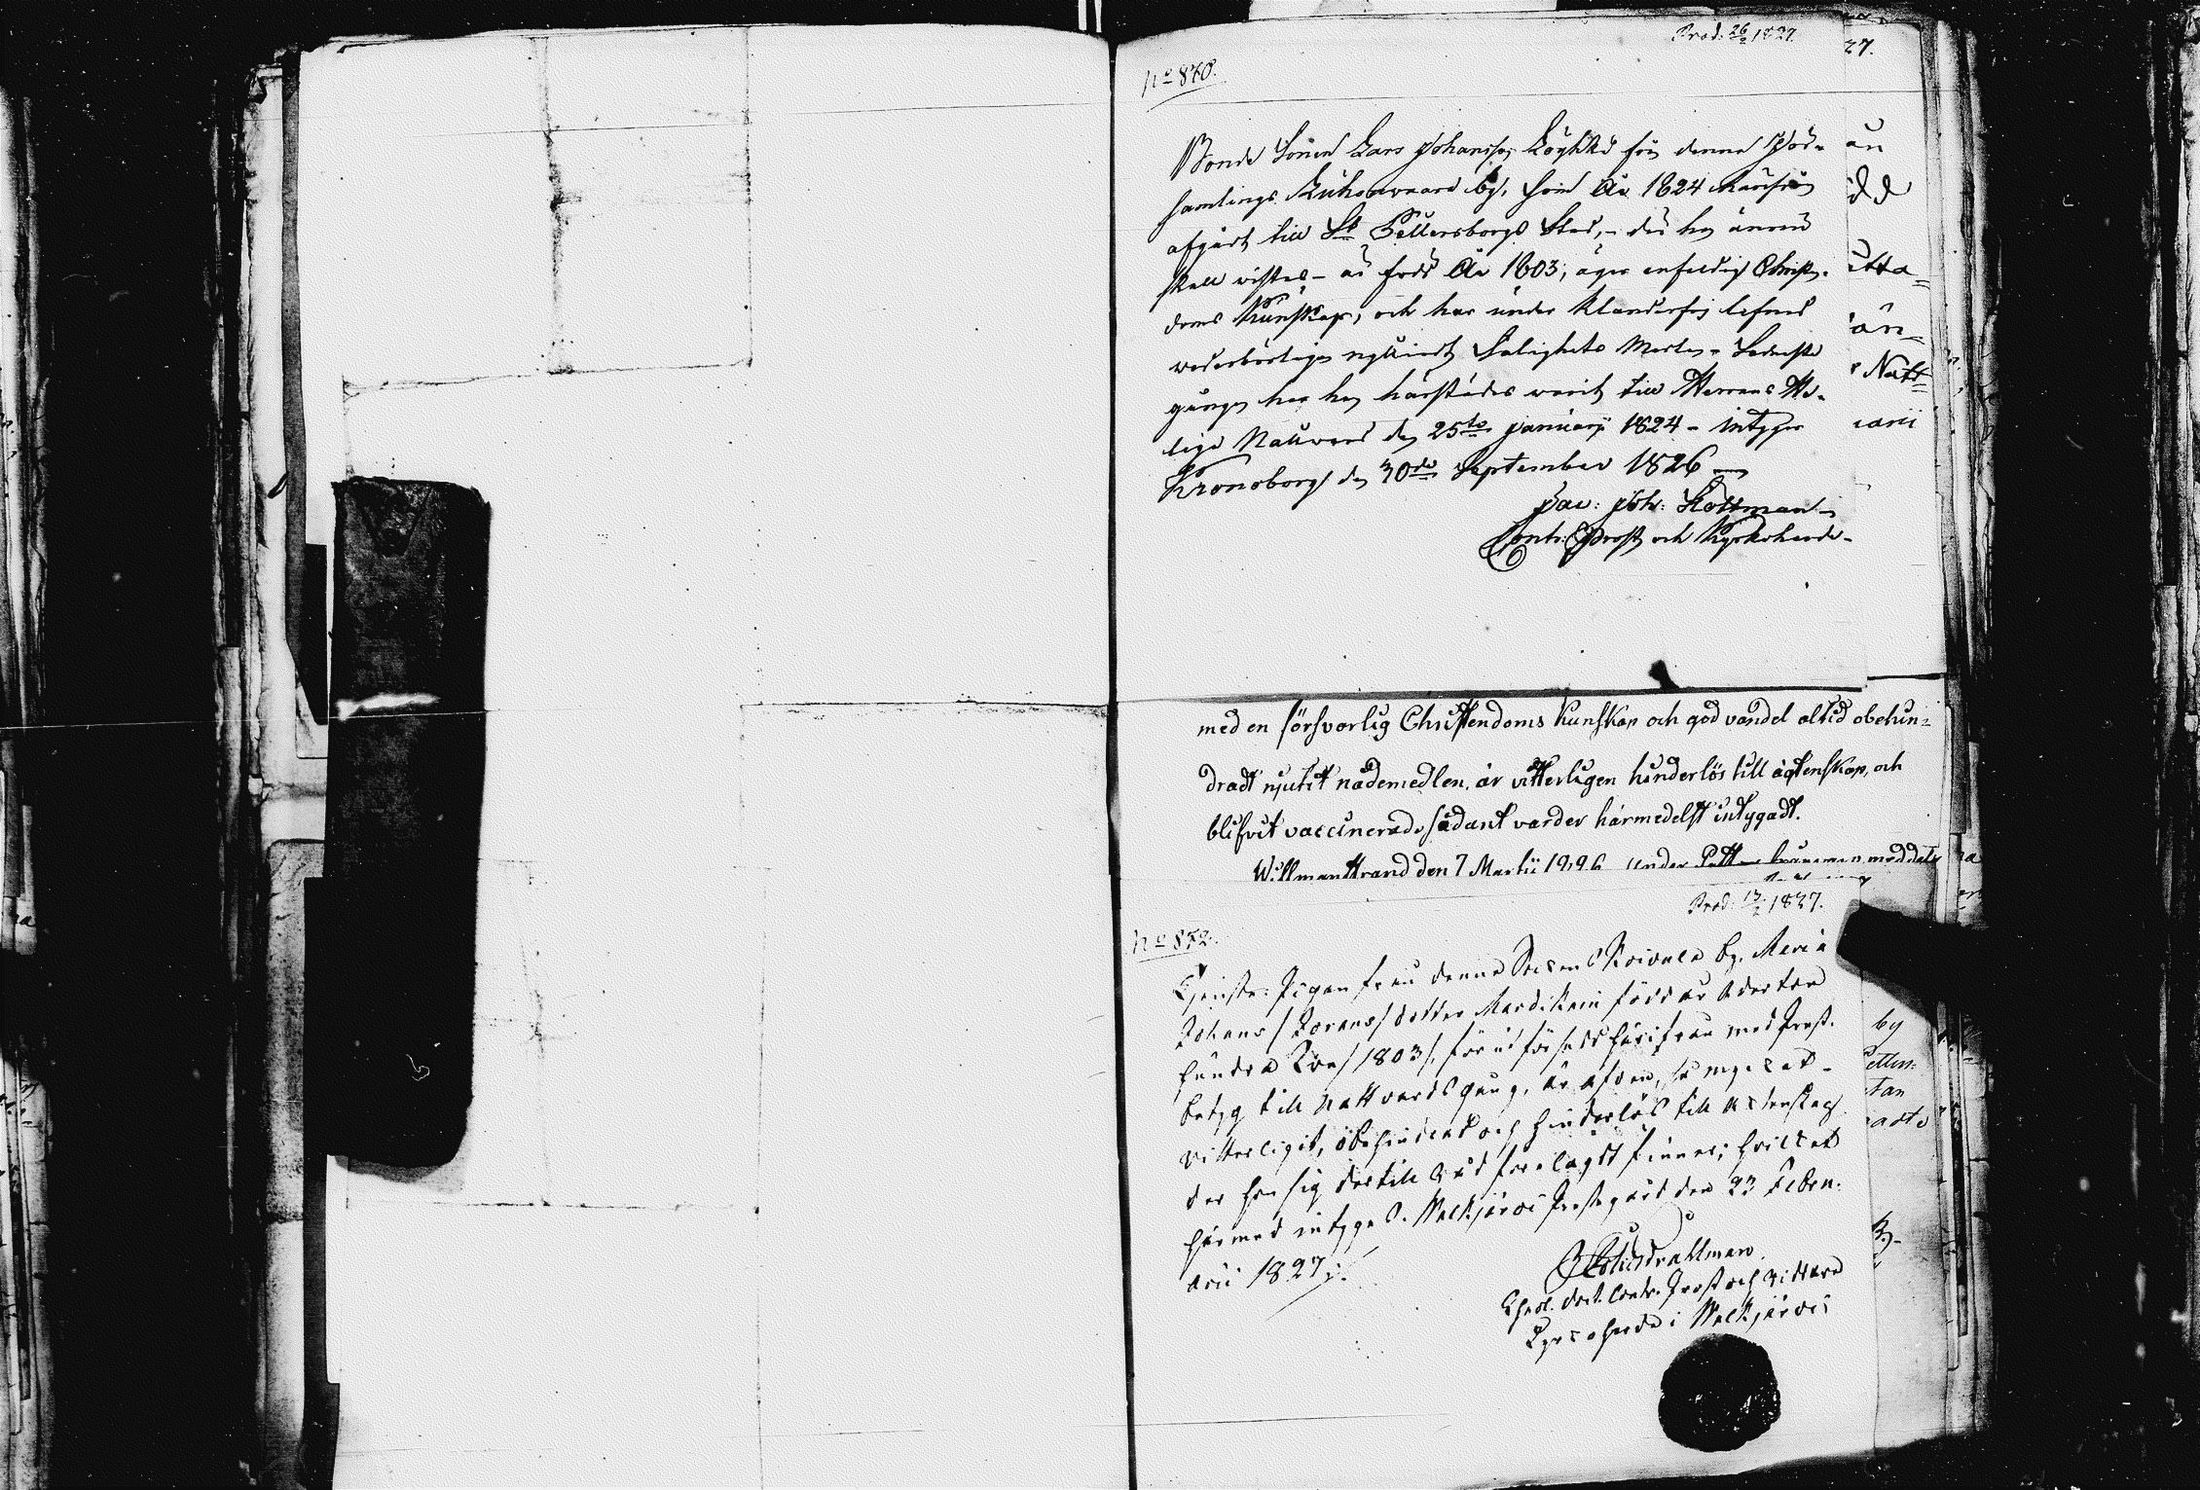 Prod: 26/2 1827.
27.
No 870.
Bonde Sonen Lars Johansson Löykkö från denna För-
samlings Kuhonwaara by, som År 1824 härifrån
afgått till St Pettersborgs Stad, - der han ännu
skall vistas - är född År 1803, äger enfaldig Christen-
doms Kunskap, och har under klanderfri lefnad
wederbörligen nytjadt Salighets Medlen - Sednaste
gången har han härstädes warit till Herrans He-
liga Nattward den 25te Januarii 1824 - intygar
Kronoborg den 30de September 1826
Jac: Joh: Kottman
Contr: Prost och Kyrkoherde
än
dd
itta=
än=
Natt=
arii
med en försvarlig Christendoms Kunskap och god vandel altid obehin=
dradt njutit nådemedlen, är vitterligen hinderlös till ägtenskap, och
blifvit vaccinerad, sådant varder härmedelst intygadt.
Willmanstrand den 7 Martii 1826 under
Prod: 13/2 1827.
No 872.
Tjenste Pigan från denna Socken Koivula by, Maria
Johans/Jorans/dotter Mardikain född år Adertan
hundra Tre /1803/, förut försedd härifrån med Prest-
betyg till Nattvardsgång, är äfven, så mycket
vitterligit, obehindrad och hinderlös till Äctenskap
der hon sig dertill Gud förelagdt finner; hvilcket
härmed intygas. Walkjärvi Prestegård den 23 Febru-
arii 1827.
Theol. Doct. Contr. Prost och Riddare
Kyrcoherde i Walkjärvi
by
Petters
tan